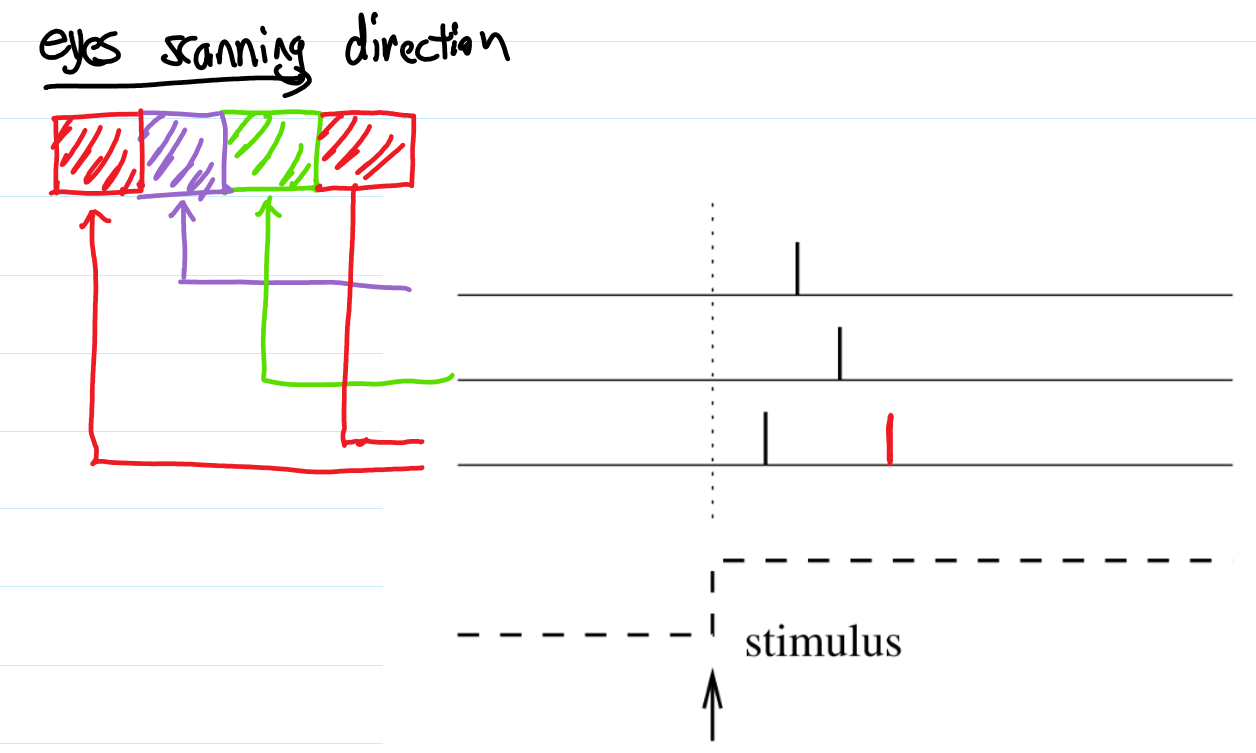 eyes scanning direction
stimulus